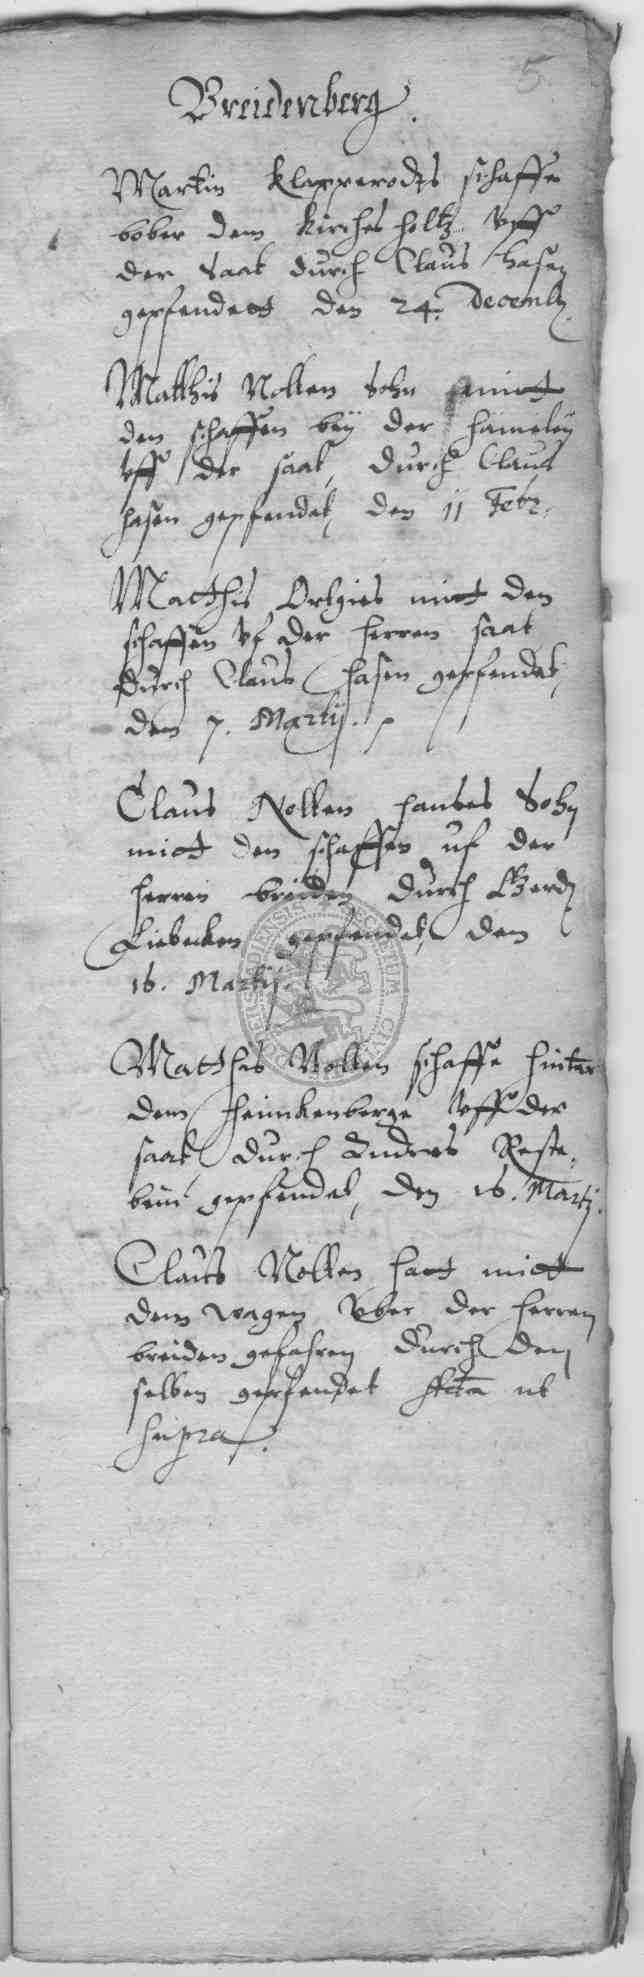 5
Breidenberg.
Martin Klapperodts schaffe
bober dem Kirchesholtz Vff
der Saat durch Claus Hasen
gepfendett den 24. Decemb.
Matthis Nolten Sohn mitt
den schaffen beÿ der
vff der saat, durch Claus
hasen gepfendet, den 11 Febr.
Matthis Ortgies mitt den
schaffen vf der herren saat
durch Claus Hasen gepfendet,
den 7. Martij.
Claus Nolten Sohn
mitt den schaffen uf der
herren breiden, durch Gerdt
Liebecken gepfendet, den
16. Martij.
Matthis Nolten schaffe hinter
dem Heimkenberge vff der
saat, durch Andres
gepfendet, den 16. Martij.
Claus Nolten hatt mitt
dem wagen vber der herren
breiden gefahren durch den
selben gepfendet ut
supra.